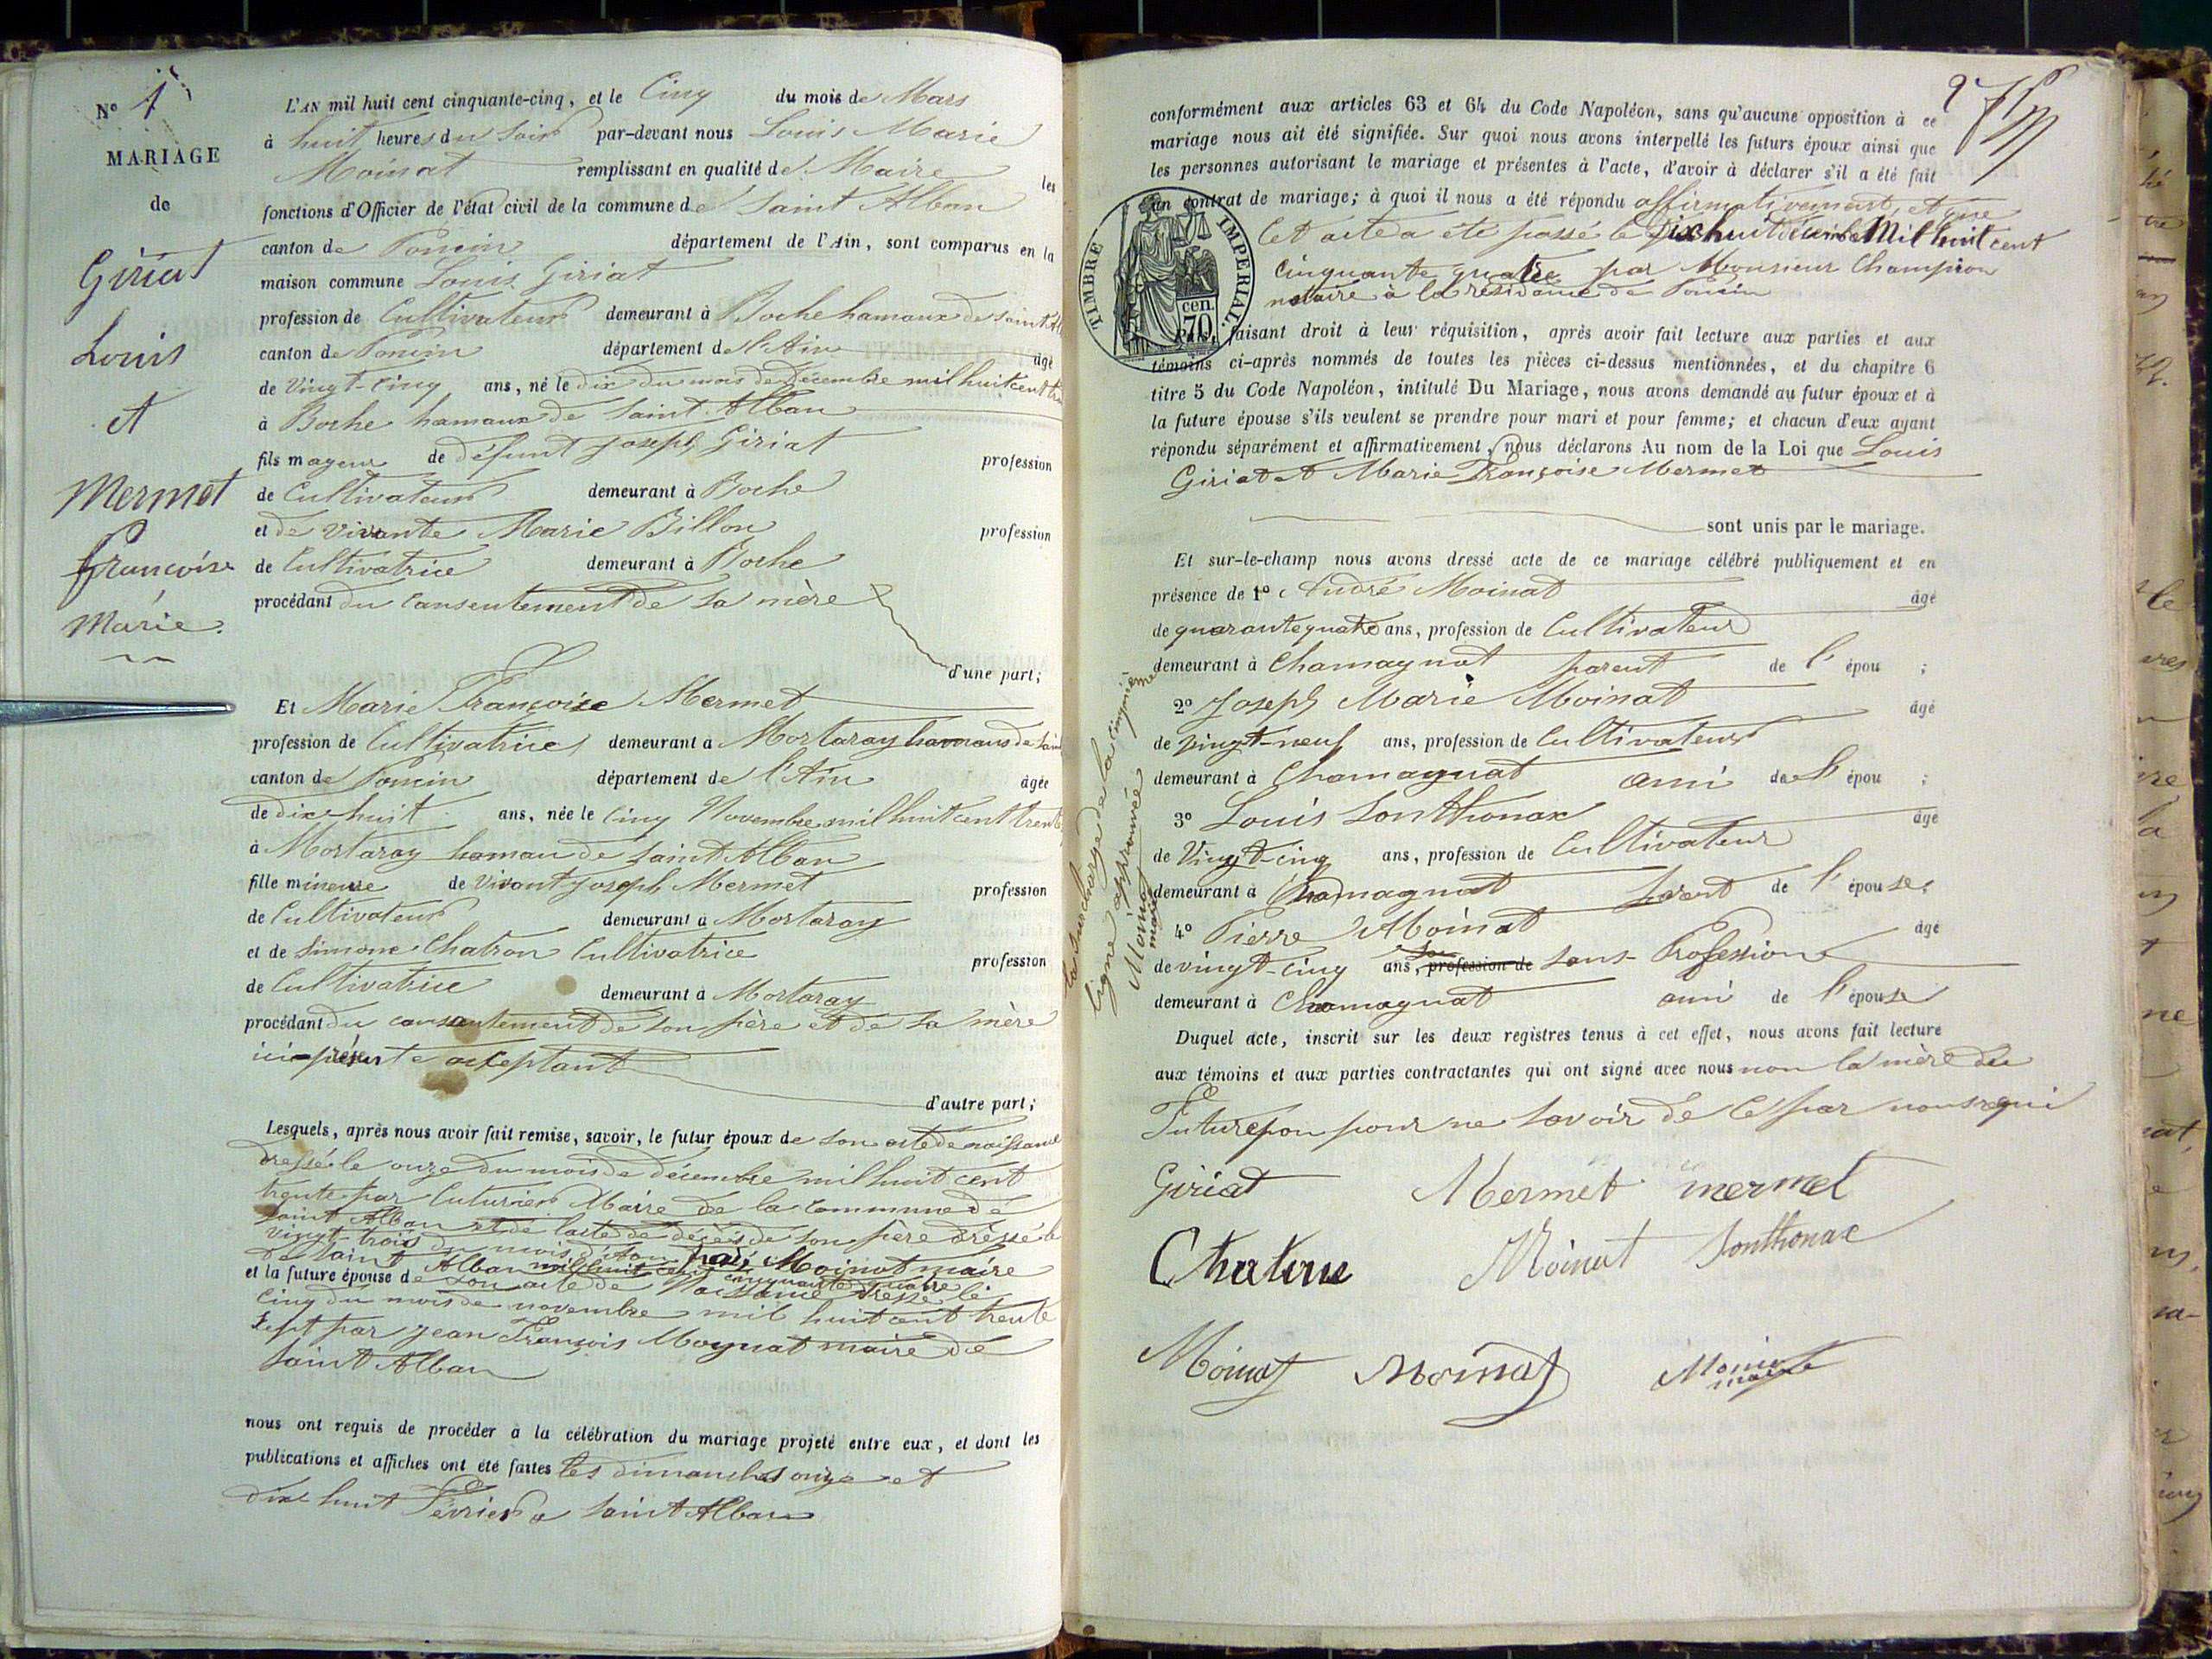 N° 1
MARIAGE
de
Giriat
Louis
et
Mermet
françoise
Marie.
L'AN mil huit cent cinquante-cinq, et le Cinq du mois de Mars
à huit heures du Soir par-devant nous Louis Marie
Moinat remplissant en qualité de Maire les
fonctions d'Officier de l'état civil de la commune de Saint Alban
canton de Poncin département de l'Ain, sont comparus en la
maison commune Louis Giriat
profession de Cultivateur demeurant à Boche hamaux de Saint Al
canton de Poncin département de l'Ain âgé
de Vingt-cinq ans, né le dix du mois de Décembre mil huit cent
à Boche hamaux de Saint Alban
fils mageur de défunt Joseph Giriat profession
de Cultivateur demeurant à Boche
et de vivante Marie Billon profession
de Cultivatrice demeurant à Boche
procédant du consentement de sa mère
d'une part;
Et Marie Françoise Mermet
profession de Cultivatrice demeurant à Mortaray hamaus de
canton de Poncin département de l'Ain âgée
de dix-huit ans, née le Cinq Novembre mil huit cent trente
à Mortaray hamau de Saint Alban
fille mineure de vivant Joseph Mermet profession
de Cultivateur demeurant à Mortaray
et de Simone Chatron Cultivatrice profession
de Cultivatrice demeurant à Mortaray
procédant du consentement de son père et de sa mère
ici présente acceptant
d'autre part;
Lesquels, après nous avoir fait remise, savoir, le futur époux de son acte de naissance
dressé le onze du mois de décembre mil huit cent
trente par Maire de la Commune de
Saint Alban et de l'acte de décès de son père dréssé le
vingt-trois du mois par Moinat maire
de Saint Alban mil huit cent cinquante quatre
et la future épouse de son acte de Naissance dressé le
Cinq du mois de novembre mil huit cent trente
Sept par Jean François Moynat maire de
Saint Alban
nous ont requis de procéder à la célébration du mariage projeté entre eux, et dont les
publications et affiches ont été faites les dimanches onze et
dix huit Février a Saint Alban
2
conformément aux articles 63 et 64 du Code Napoléon, sans qu'aucune opposition à ce
mariage nous ait été signifiée. Sur quoi nous avons interpellé les futurs époux ainsi que
les personnes autorisant le mariage et présentes à l'acte, d'avoir à déclarer s'il a été fait
un contrat de mariage; à quoi il nous a été répondu affirmativement, et que
Cet acte a été passé le Dix huit décembre Mil huit cent
cinquante quatre par Monsieur Champion
notaire à la résidance de Poncin
TIMBRE IMPERIAL.
70 cen.
Puis, faisant droit à leur réquisition, après avoir fait lecture aux parties et aux
témoins ci-après nommés de toutes les pièces ci-dessus mentionnées, et du chapitre 6
titre 5 du Code Napoléon, intitulé Du Mariage, nous avons demandé au futur époux et à
la future épouse s'ils veulent se prendre pour mari et pour femme; et chacun d'eux ayant
répondu séparément et affirmativement, nous déclarons Au nom de la Loi que Louis
Giriat et Marie Françoise Mermet
sont unis par le mariage.
Et sur-le-champ nous avons dressé acte de ce mariage célébré publiquement et en
présence de 1° André Moinat âgé
de quarante quatre ans, profession de Cultivateur
demeurant à Chamagnat parent de l' épou ;
2° Joseph Marie Moinat âgé
de vingt-neuf ans, profession de Cultivateur
demeurant à Chamagnat ami de l' épou ;
3° Louis Sonthonax âgé
de Vingt-cinq ans, profession de Cultivateur
demeurant à Chamagnat parent de l' épouse;
4° Pierre Moinat âgé
de vingt-cinq ans, profession de sans Profession
demeurant à Chamagnat ami de l' épouse
Duquel acte, inscrit sur les deux registres tenus à cet effet, nous avons fait lecture
aux témoins et aux parties contractantes qui ont signé avec nous non la mère du
Futur pour ne savoir de ce par nous requi
La Surcharge de la cinquième
ligne approuvée
Moinat
maire
Giriat Mermet mermet
Moinat Sonthonax
Moinat Moinat Moinat
maire